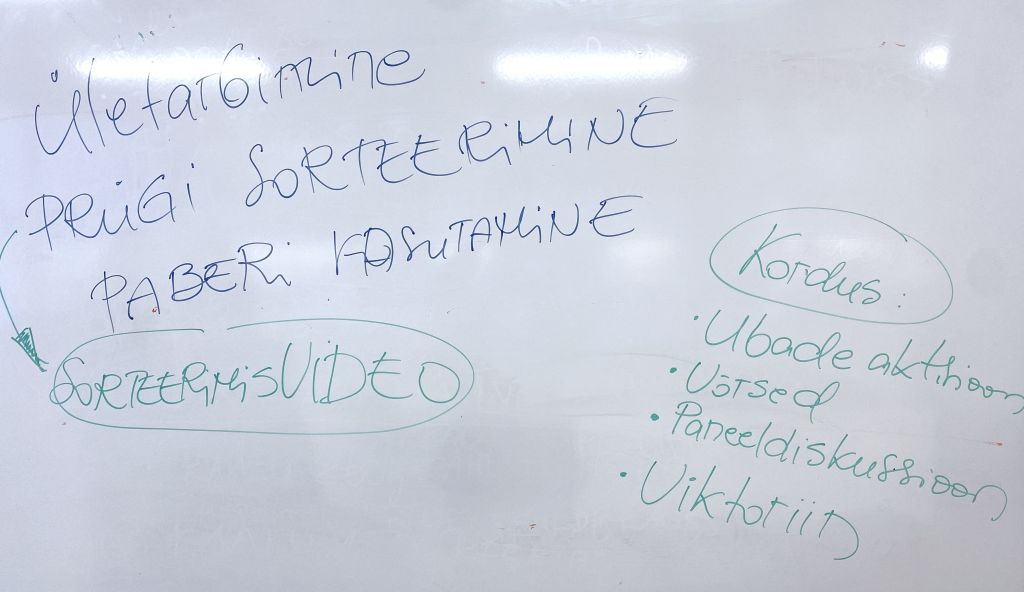 Ületarbimine
PRÜGI SORTEERIMINE
PABERI KASUTAMINE
SORTEERIMISVIDEO
Kordus:
• Ubade aktsioon
• Võrsed
• Paneeldiskussioon
• Viktoriin